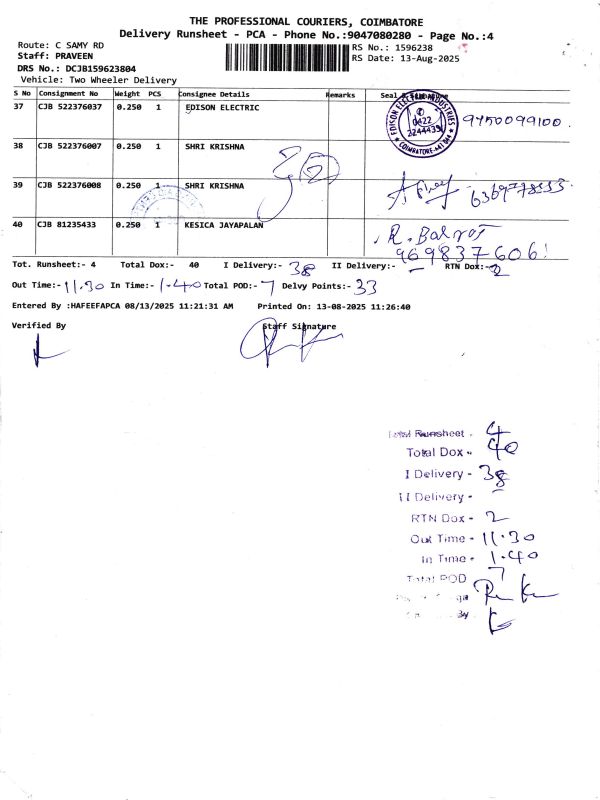 THE PROFESSIONAL COURIERS, COIMBATORE
Delivery Runsheet - PCA - Phone No.:9047080280 - Page No.:4
Route: C SAMY RD
RS No.: 1596238
Staff: PRAVEEN
RS Date: 13-Aug-2025
DRS No.: DCJB159623804
Vehicle: Two Wheeler Delivery
S No Consignment No Weight PCS Consignee Details Remarks
37 CJB 522376037 0.250 1 EDISON ELECTRIC 9750099100
EDISON ELECTRIC INDUSTRIES
0422
2244439
COIMBATORE
38 CJB 522376007 0.250 1 SHRI KRISHNA
39 CJB 522376008 0.250 1 SHRI KRISHNA
40 CJB 81235433 0.250 1 KESICA JAYAPALAN
969837606
Tot. Runsheet:- 4 Total Dox:- 40 I Delivery:- 38 II Delivery:- - RTN Dox:- 2
Out Time:- 11.30 In Time:- 1.40 Total POD:- 7 Delvy Points:- 33
Entered By :HAFEEFAPCA 08/13/2025 11:21:31 AM Printed On: 13-08-2025 11:26:40
Verified By Staff Signature
Total Runsheet - 4
Total Dox - 40
I Delivery - 38
II Delivery - -
RTN Dox - 2
Out Time - 11.30
In Time - 1.40
Total POD 7
By